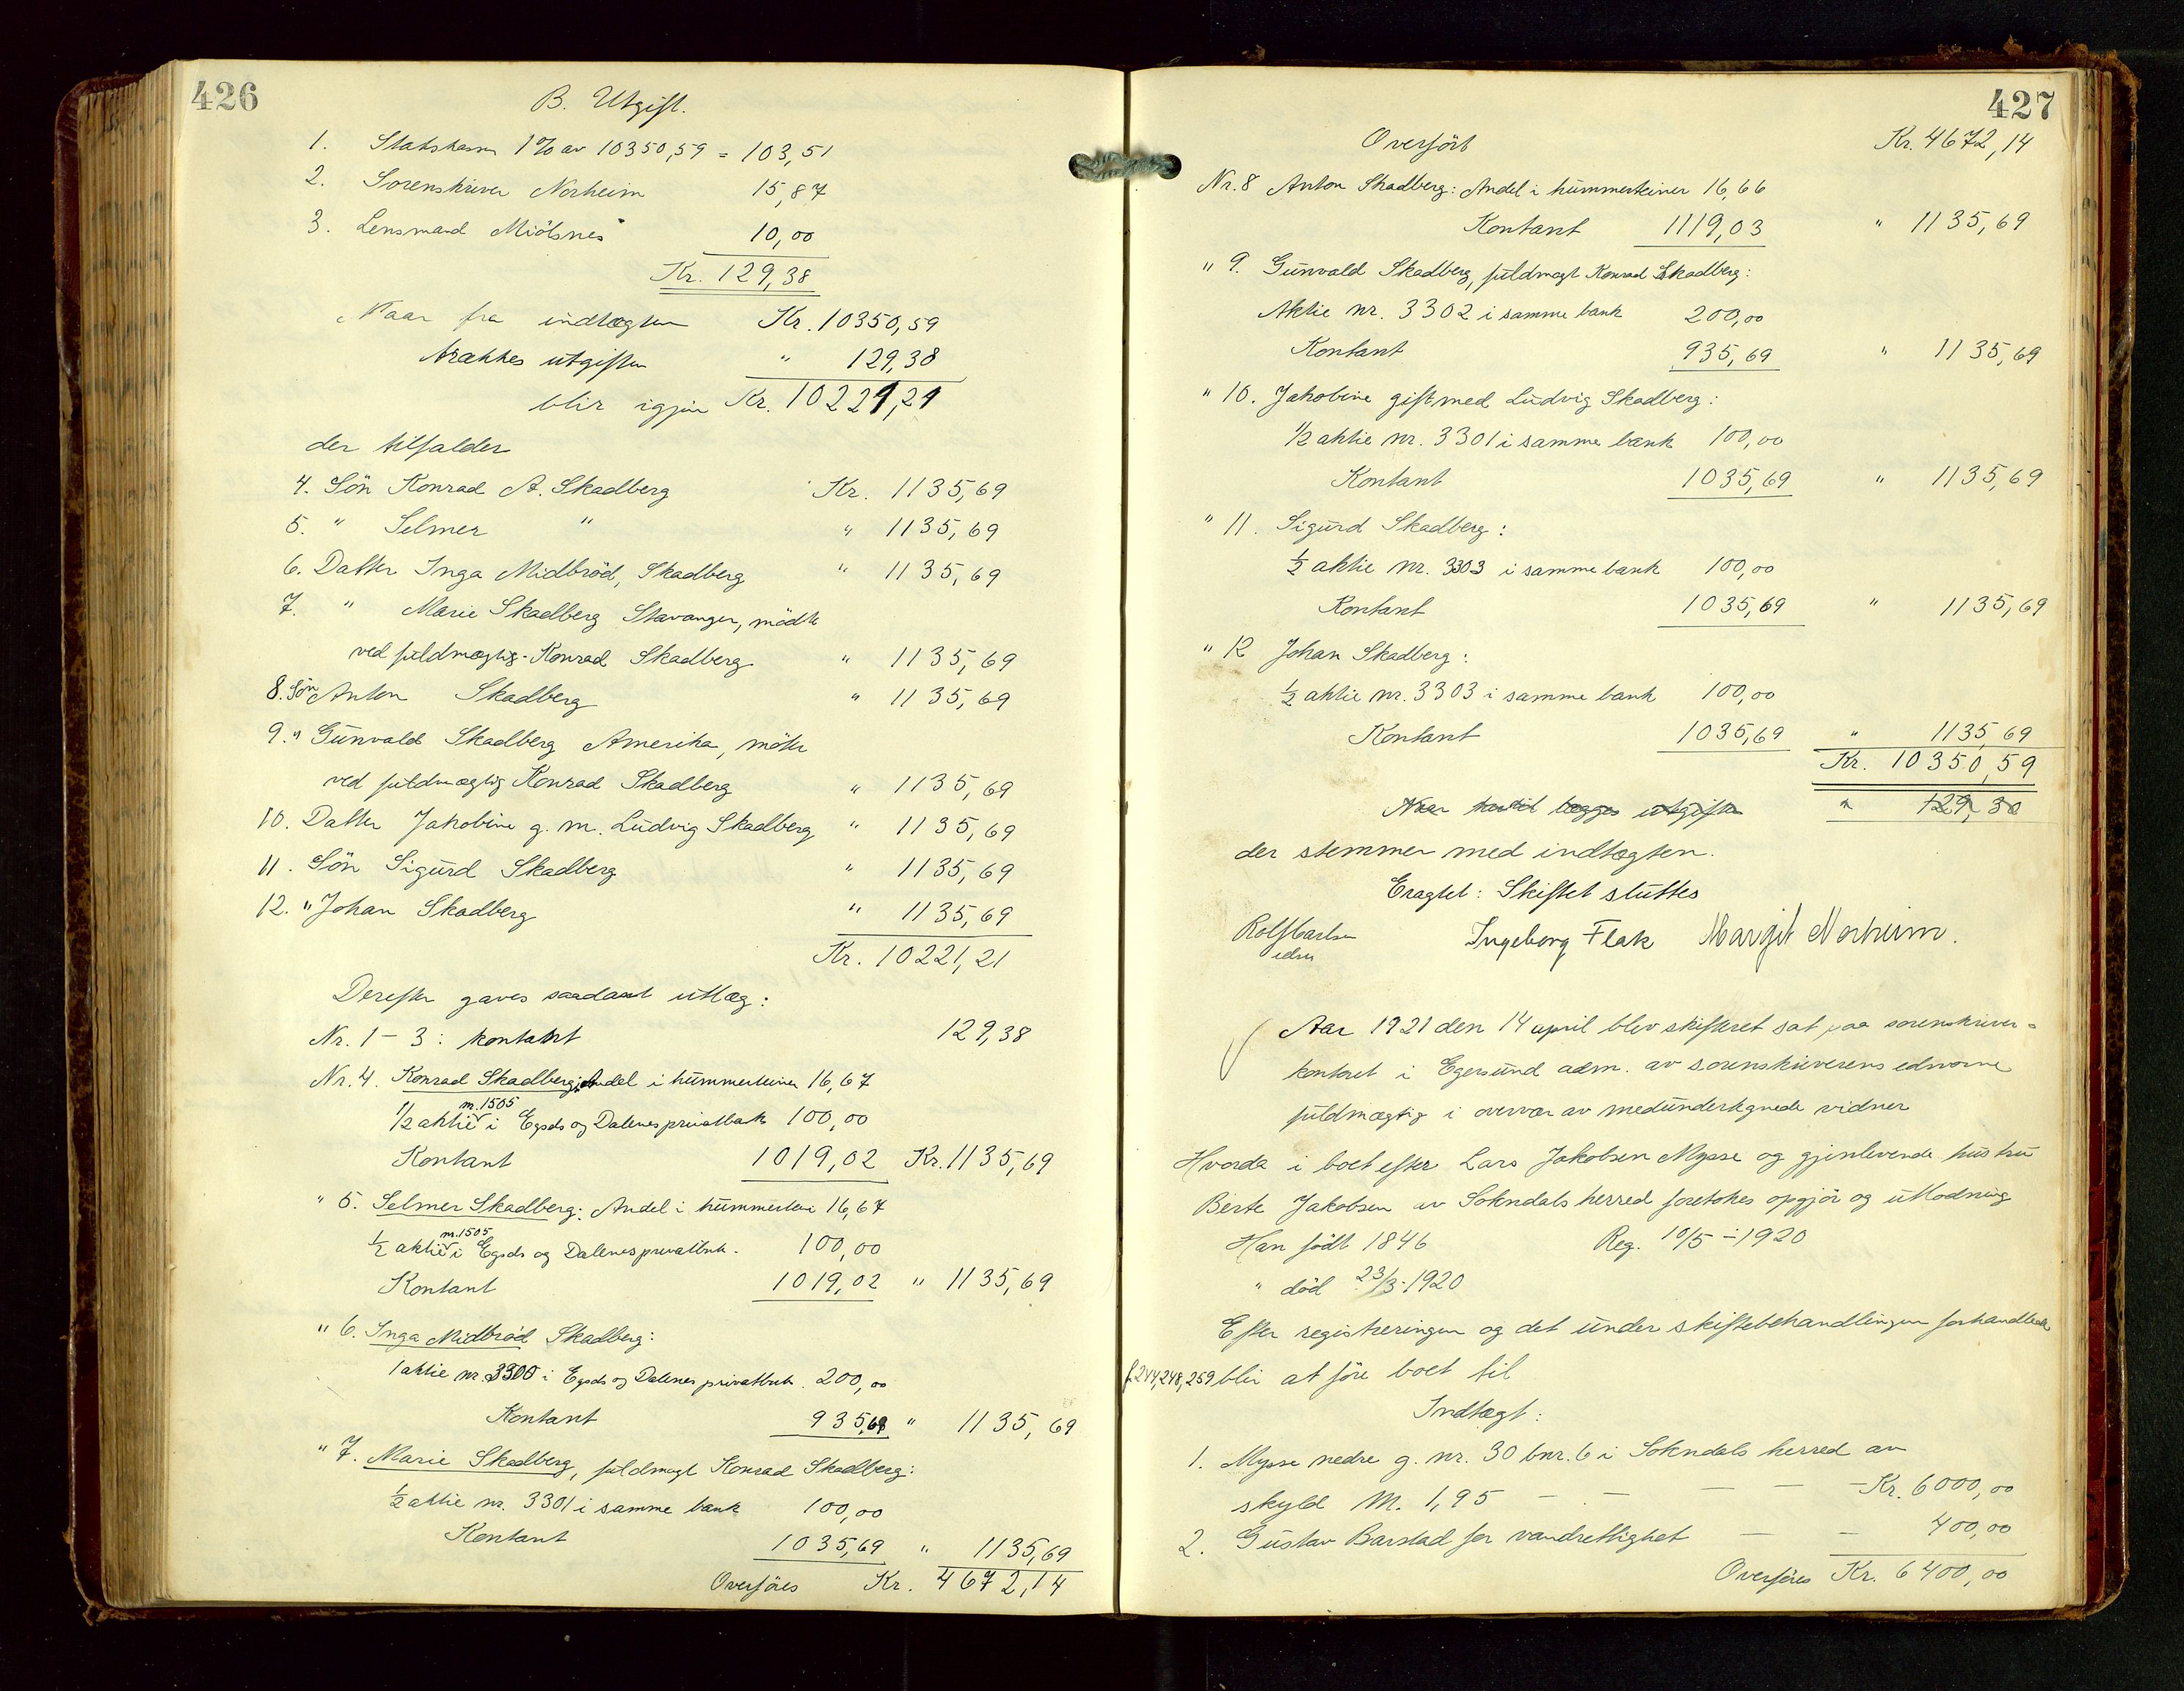 426
B. Utgift.
1. Statskassen 1% av 10350,59 = 103,51
2. Sorenskriver Norheim 15,87
3. Lensmand Mjölsnes 10,00
Kr. 129,38
Naar fra indtægten Kr. 10350,59
trækkes utgiften " 129,38
blir igjen Kr. 10221,21
der tilfalder
4. Sön Konrad A. Skadberg Kr. 1135,69
5. " Selmer " " 1135,69
6. Datter Inga Midbröd, Skadberg " 1135,69
7. " Marie Skadberg Stavanger, mödte
ved fuldmægtig Konrad Skadberg " 1135,69
8. Sön Anton Skadberg " 1135,69
9. " Gunvald Skadberg Amerika, möter
ved fuldmægtig Konrad Skadberg " 1135,69
10. Datter Jakobine g. m. Ludvig Skadberg " 1135,69
11. Sön Sigurd Skadberg " 1135,69
12. " Johan Skadberg " 1135,69
Kr. 10221,21
Derefter gaves saadant utlæg:
Nr. 1 - 3: kontant 129,38
Nr. 4. Konrad Skadberg: Andel i hummerteiner 16,67
nr. 1505
1/2 aktie i Egsds og Dalenes privatbank 100,00
Kontant 1019,02 Kr. 1135,69
" 5. Selmer Skadberg: Andel i hummerteine 16,67
nr. 1505
1/2 aktie i Egsds og Dalenes privatbnk. 100,00
Kontant 1019,02 " 1135,69
" 6. Inga Midbröd Skadberg:
1 aktie nr. 3300 i Egsds og Dalenes privatbnk. 200,00
Kontant 935,69 " 1135,69
" 7. Marie Skadberg, fuldmægt Konrad Skadberg:
1/2 aktie nr. 3301 i samme bank 100,00
Kontant 1035,69 " 1135,69
Overföres Kr. 4672,14
427
Overfört Kr. 4672,14
Nr. 8 Anton Skadberg: Andel i hummerteiner 16,66
Kontant 1119,03 " 1135,69
" 9. Gunvald Skadberg, fuldmagt Konrad Skadberg:
Aktie nr. 3302 i samme bank 200,00
Kontant 935,69 " 1135,69
" 10. Jakobine gift med Ludvig Skadberg:
1/2 aktie nr. 3301 i samme bank 100,00
Kontant 1035,69 " 1135,69
" 11. Sigurd Skadberg:
1/2 aktie nr. 3303 i samme bank 100,00
Kontant 1035,69 " 1135,69
" 12 Johan Skadberg:
1/2 aktie nr. 3303 i samme bank 100,00
Kontant 1035,69 " 1135,69
Kr. 10350,59
Naar hertil lægges utgiften " 129,38
der stemmer med indtægten.
Eragtet: Skiftet sluttes
Rolf Carlsen Ingeborg Flak Margit Norheim.
edsv
Aar 1921 den 14 april blev skifteret sat paa sorenskriver-
kontoret i Egersund adm. av sorenskriverens edsvorne
fuldmægtig i overvær av medundertegnede vidner
Hvorda i boet efter Lars Jakobsen Mysse og gjenlevende hustru
Berte Jakobsen av Sokndals herred foretokes opgjör og utlodning
Han födt 1846 Reg. 10/5 - 1920
" död 23/3 - 1920
Efter registreringen og det under skiftebehandlingen forhandlede
f. 244,248,259 blir at före boet til
Indtægt:
1. Mysse nedre g. nr. 30 bnr. 6 i Sokndals herred av
skyld M. 1,95 - - - - - Kr. 6000,00
2. Gustav Barstad for vandrettighet - - 400,00
Overföres Kr. 6400,00